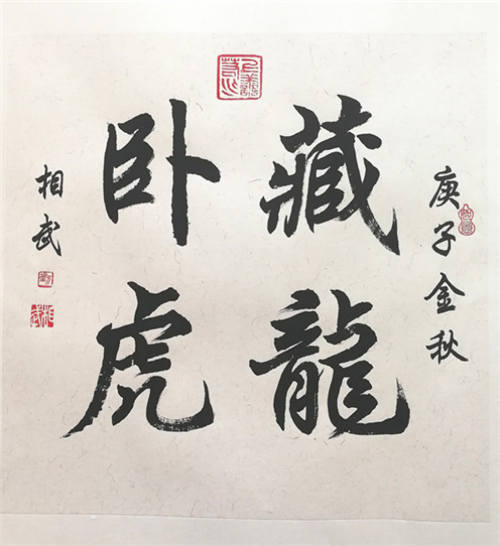 庚子金秋
藏龍
卧虎
相武